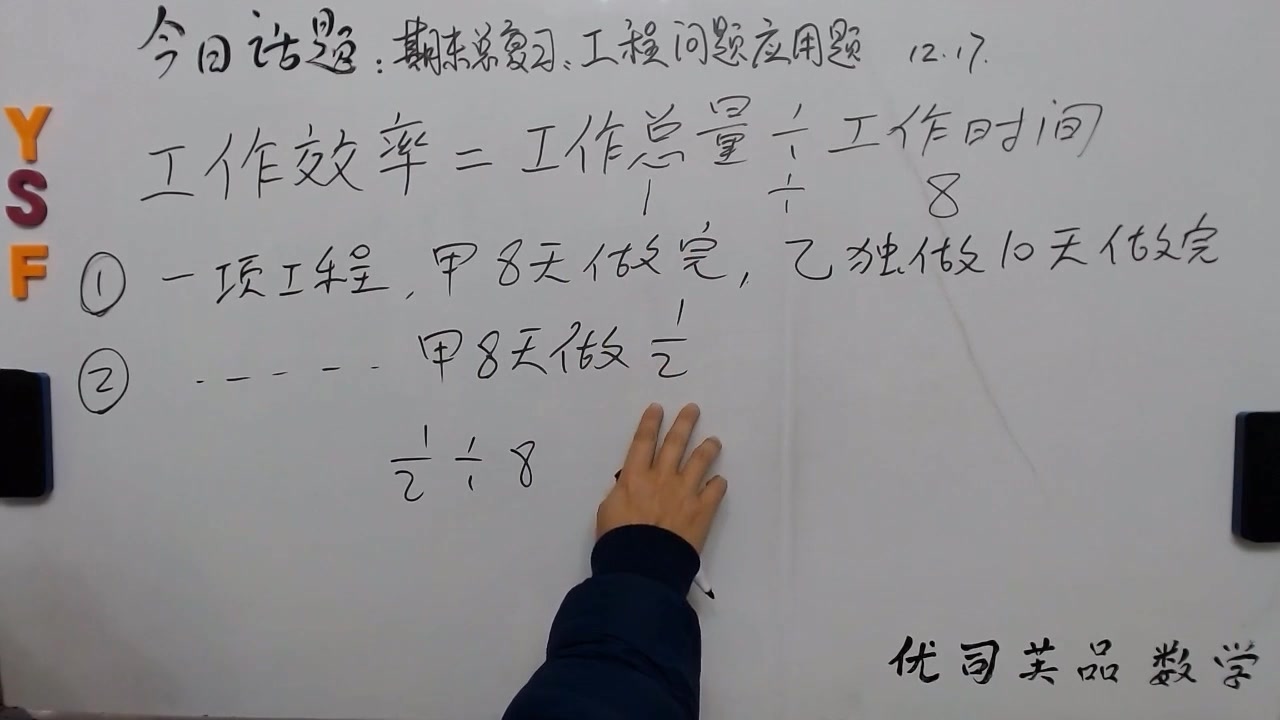 今日话题：期末总复习、工程问题应用题 12.17.
工作效率=工作总量÷工作时间
1 ÷ 8
① 一项工程,甲8天做完,乙独做10天做完
② ----- 甲8天做1/2
1/2÷8
YSF
优司芙品数学